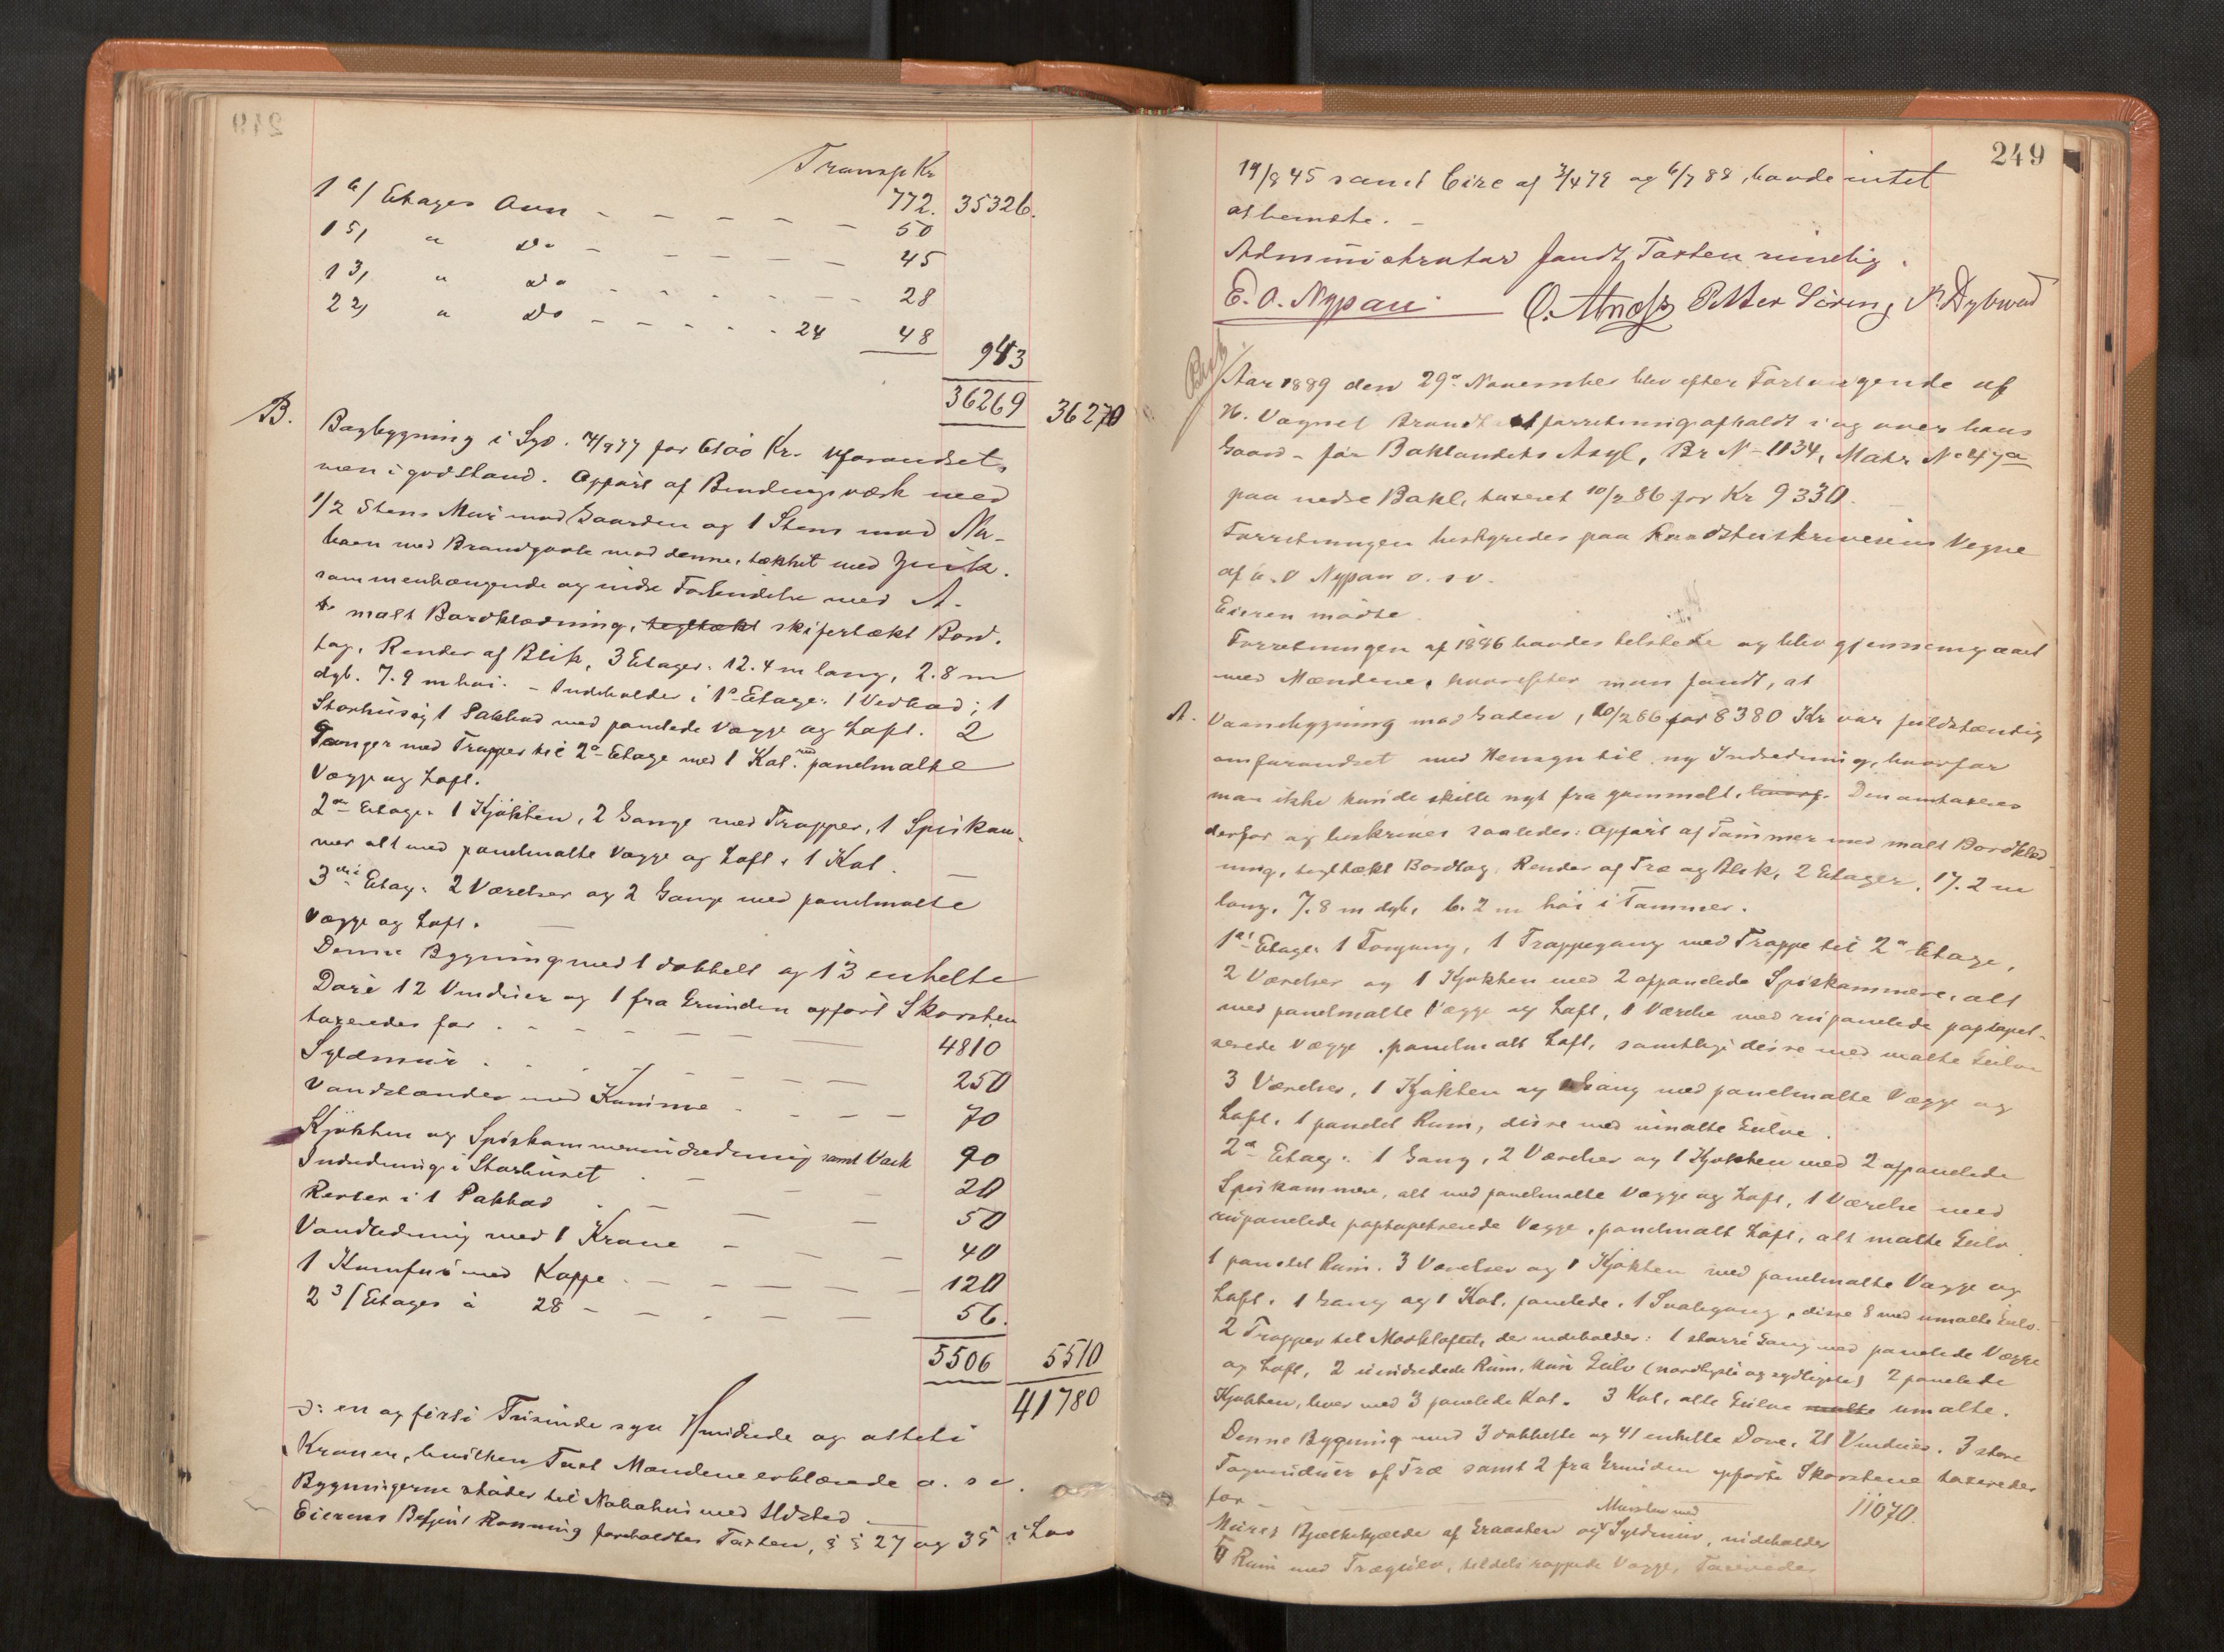 Transp Kr
772. 35326.
1 6/ Etages Ovn - - - - - 50
1 5/ " Do - - - - - 45
1 3/ " Do - - - - - 28
2 2/ " Do - - - - - 24 48
943
36269 36270
B. Bagbygning i Syd. for 6100 Kr. uforandret,
men i god Stand. Opført af Bindingsværk med
1/2 Stens Mur mod Gaarden og 1 Stens mod Na-
boen med Brandgavle mod denne, tækket med Zink.
sammenhængende og indre Forbindelse med A.
malt Bordklædning, tegltækt skifertækt Bord-
tag, Render af Blik, 3 Etager. 12.4 m lang, 2.8 m
dyb. 7.9 m høi. - Indeholder i 1ste Etage: 1 Vedbod; 1
Storhus og 1 Pakbod med panelede Vægge og Loft. 2
Gange med Trapper til 2den Etage med 1 Kot. med panelmalte
Vægge og Loft.
2den Etage: 1 Kjøkken, 2 Gange med Trapper, 1 Spiskam-
mer alt med panelmalte Vægge og Loft. 1 Kot.
3die Etag: 2 Værelser og 2 Gange med panelmalte
Vægge og Loft.
Denne Bygning med 1 dobbelt og 13 enkelte
Døre 12 Vinduer og 1 fra Grunden opført Skorsten
taxeredes for - - - - - 4810
Syldmur - - - - - 250
Vandstender med Kumme - - - - 70
Kjøkken og Spiskammerindredning samt Vask 90
Indredning i Storhuset - - - 20
Reoler i 1 Pakbod - - - 50
Vandledning med 1 Krane - - - 40
1 Komfur med Kappe - - - - 120
2 3/ Etages à 28 - - - - 56.
5506 5510
41780
ɔ: en og firti Tusinde syv Hundrede og otteti
Kroner, hvilken Taxt Mændene erklærede o. s. v.
Bygningerne støder til Nabohus med Ildsted
Eierens Betjent Rønning foreholdtes Taxten, § § 27 og 35 i Lov
249
19/8 45 samt Circ af 3/4 79 og 6/7 88, havde intet
at bemærke. -
Administrator fandt Taxten rimelig.
E. O. Nypan O. Petter K. Dybwad
Aar 1889 den 29de November blev efter Forlangende af
H. Vognet Brandt forretning afholdt i og over hans
Gaard - før Baklandets Asyl, Br No 1134, Matr No 47a
paa nedre Bakl. taxeret 10/2 86 for Kr 9330.
Forretningen bestyredes paa Raadstuskriverens Vegne
af E. O Nypan o. s v.
Eieren mødte
Forretningen af 1886 havdes tilstede og blev gjennemgaaet
med Mændene, hvorefter man fandt, at
A. Vaanebygning mod Gaden, 10/2 86 for 8380 Kr var fuldstændig
omforandret med Hensyn til ny Indredning, hvorfor
man ikke kunde skille nyt fra gammelt. Den omtaxeres
derfor og beskrives saaledes: Opført af Tømmer med malt Bordklæd
ning, tegltækt Bordtag, Render af Træ og Blik, 2 Etager, 17.2 m
lang, 7.8 m dyb, 6.2 m høi i Tømmer.
1ste Etage: 1 Forgang, 1 Trappegang med Trappe til 2den Etage,
2 Værelser og 1 Kjøkken med 2 afpanelede Spiskammere, alt
med panelmalte Vægge og Loft, 1 Værelse med rupanelede paptapet-
serede Vægge, panelmalt Loft, samtlige disse med malte Gulve
3 Værelser, 1 Kjøkken og Gang med panelmalte Vægge og
Loft. 1 panelet Rum, disse med umalte Gulve.
2den Etag: 1 Gang, 2 Værelser og 1 Kjøkken med 2 afpanelede
Spiskammere, alt med panelmalte Vægge og Loft, 1 Værelse med
rupanelede paptapetserede Vægge, panelmalt Loft, alt malte Gulv.
1 panelet Rum. 3 Værelser og 1 Kjøkken med panelmalte Vægge og
Loft. 1 Gang og 1 Kot. panelede. 1 Svalegang, disse 8 med umalte Gulv.
2 Trapper til Mørkloftet, der indeholder: 1 større Gang med panelede Vægge
og Loft, 2 uindredede Rum, kun Gulv (nordligste og sydligste) 2 panelede
Kjøkken, hver med 3 panelede Kot. 3 Kot, alle Gulve malte umalte.
Denne Bygning med 3 dobbelte og 41 enkelte Døre, 21 Vinduer. 3 store
Tagvinduer af Træ samt 2 fra Grunden opførte Skorstene taxeredes
for - 11070.
Murs med
Muret Bjælkekjælde af Graasten og Syldmur, indeholder
Rum med Trægulv, tildels rappede Vægge, Taxeredes